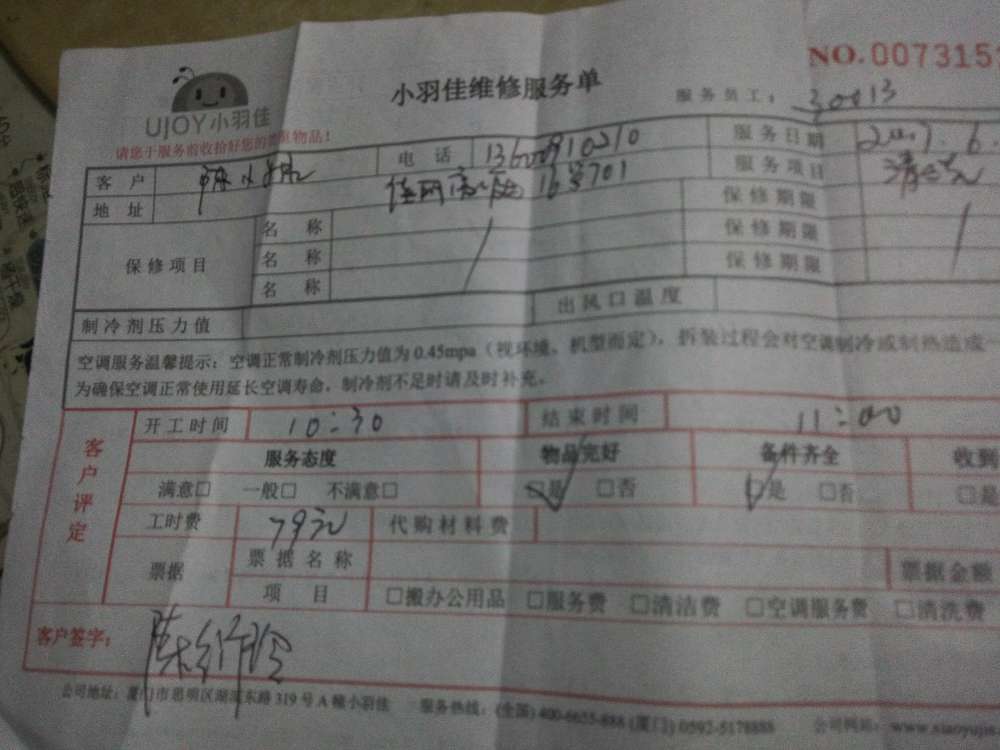 NO. 007315
小羽佳维修服务单
UJOY小羽佳
服务员工: 30013
请您于服务前收拾好您的贵重物品!
客户 陈小姐 电话 服务日期
地址 16号701 服务项目
保修项目 名称 保修期限
名称 保修期限
名称 保修期限
制冷剂压力值 出风口温度
空调服务温馨提示:空调正常制冷剂压力值为0.45mpa(视环境、机型而定),拆装过程会对空调制冷或制热造成一
为确保空调正常使用延长空调寿命,制冷剂不足时请及时补充。
客户评定
开工时间 10:30 结束时间 11:00
服务态度 物品完好 备件齐全 收到
满意□ 一般□ 不满意□ □是 □否 □是 □否 □是
工时费 79元 代购材料费
票据 票据名称 票据金额
项目 □搬办公用品 □服务费 □清洁费 □空调服务费 □清洗费
客户签字:
公司地址:厦门市思明区湖滨东路319号A幢小羽佳 服务热线:(全国)400-6655-888 (厦门)0592-5178888 公司网站:www.xiaoyuji